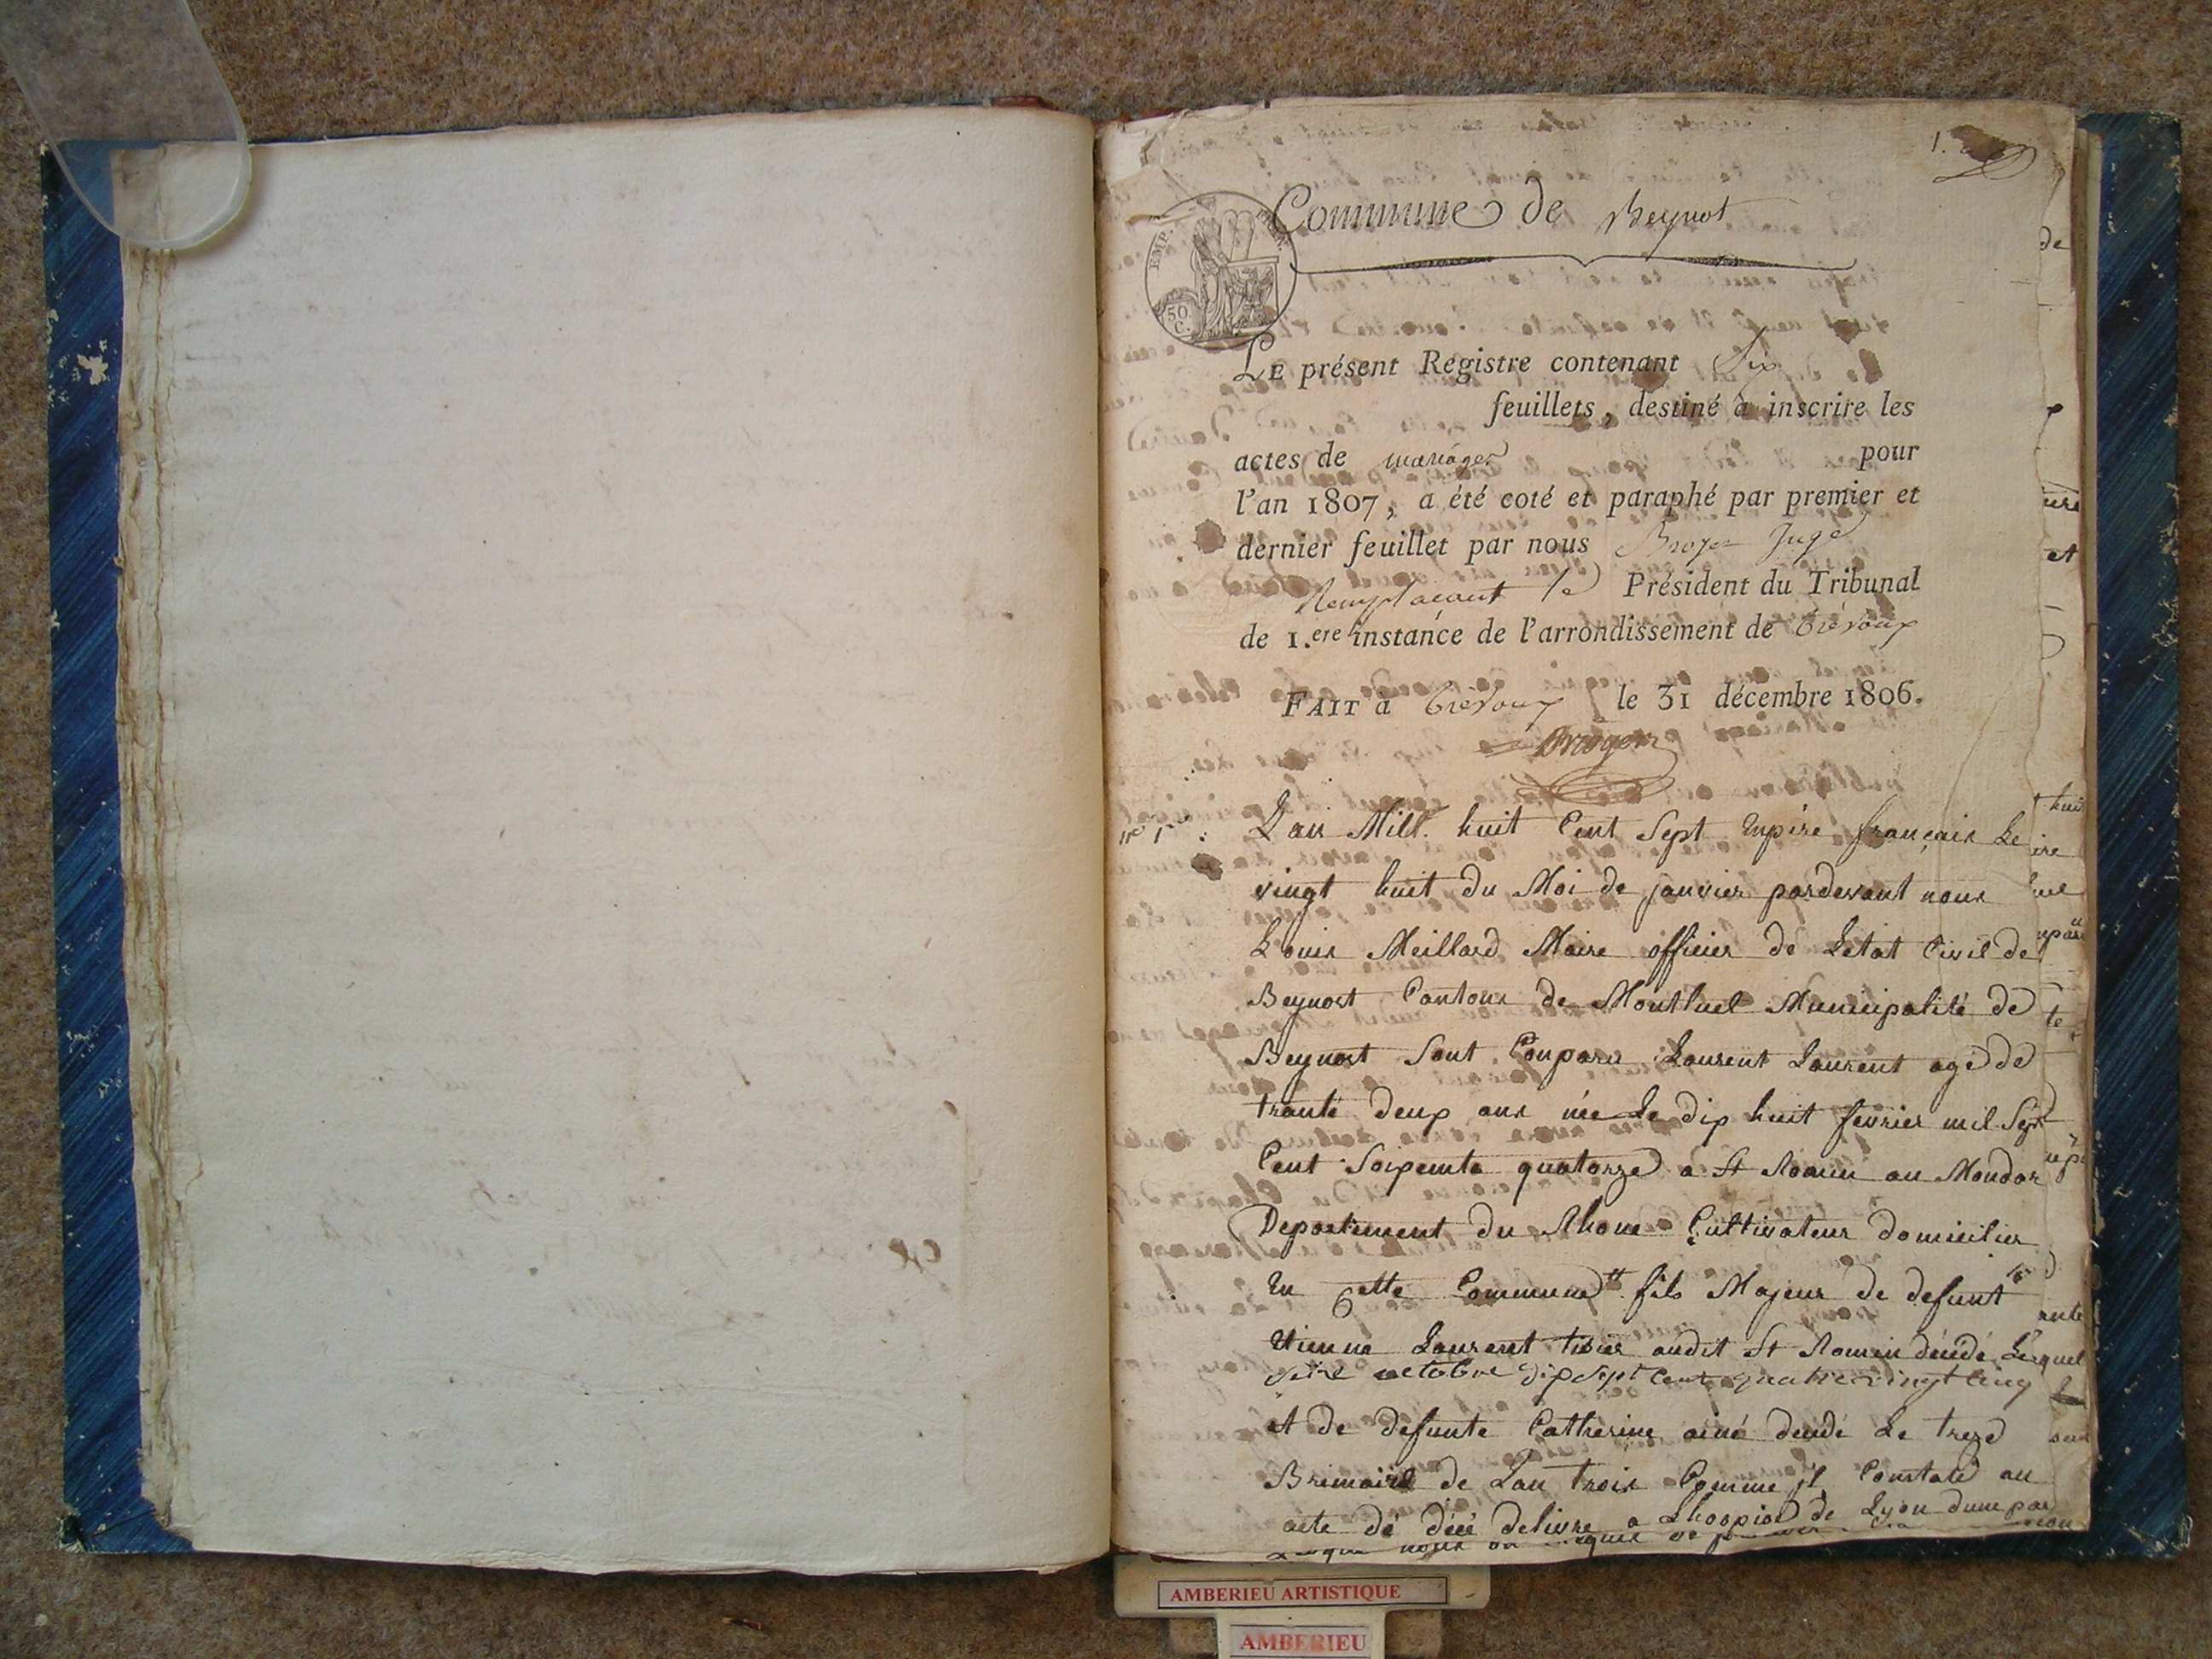 1.
Commune de Beynost
EMP.
50
C.
LE présent Régistre contenant Six
feuillets, destiné à inscrire les
actes de mariages pour
l'an 1807, a été coté et paraphé par premier et
dernier feuillet par nous Broyer Juge
Remplacant le Président du Tribunal
de 1.ere instance de l'arrondissement de Trévoux
FAIT à Trévoux le 31 décembre 1806.
Broyer
n° 1er
Lan Mill huit Cent Sept Enpire français Le
vingt huit du Moi de janvier pardevant nous
Louis Meillard Maire officier de Letat Civil de
Beynost Cantons de Montluel Municipalité de
Beynost Sont Conparu Laurent Laurent agé de
trante deux ans née Le dix huit fevrier mil Sept
Cent Soixeinte quatorze a St Romin au Mondor
Departement du Rhone Cultivateur domicilier
En Cette Commune fils Majeur de defunt
Etienne Laurent audit St Romin décédé Lequel
octobre dix Sept Cent quatre vingt Cinq
et de defunte Catherine ainé decedé Le treze
Brimaire de Lan trois Comme il Constaté au
acte de décé delivre a Lhospice de Lyon
AMBERIEU ARTISTIQUE
AMBERIEU